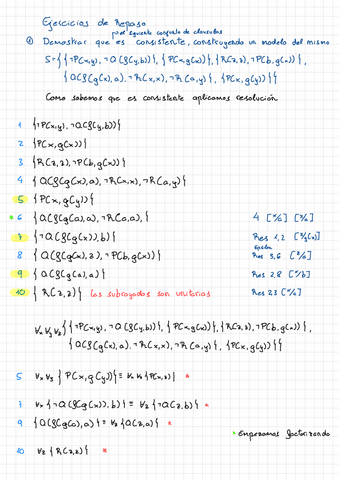 Ejercicios de Repaso
por el siguiente conjunto de clausulas
① Demostrar que es consistente, construyendo un modelo del mismo
S={{¬P(x,y), ¬Q(f(y,b))}, {P(x,g(x))}, {R(z,z), ¬P(b,g(x))},
{Q(f(g(x),a), ¬R(x,x), ¬R(a,y)}, {P(x,g(y))}}
Como sabemos que es consistente aplicamos resolución
1 {¬P(x,y), ¬Q(f(y,b))}
2 {P(x,g(x))}
3 {R(z,z), ¬P(b,g(x))}
4 {Q(f(g(x),a), ¬R(x,x), ¬R(a,y)}
5 {P(x,g(y))}
* 6 {Q(f(g(a),a), ¬R(a,a), } 4 [x/a] [y/a]
7 {¬Q(f(g(x)),b)} Res 1,2 [y/g(x)]
8 {Q(f(g(x),a), ¬P(b,g(x))} Res 3,6
9 {Q(f(g(a),a)} Res 2,8 [x/b]
10 {R(z,z)} los subrayados son unitarias Res 2,3
∀x∀y∀z{{¬P(x,y), ¬Q(f(y,b))}, {P(x,g(x))}, {R(z,z), ¬P(b,g(x))},
{Q(f(g(x),a), ¬R(x,x), ¬R(a,y)}, {P(x,g(y))}}
5 ∀x∀y {P(x,g(y))} = ∀x∀z{P(x,z)} *
7 ∀x{¬Q(f(g(x)),b)} = ∀z{¬Q(z,b)} *
9 {Q(f(g(a),a)} = ∀z{Q(z,a)} *
* Empezamos factorizando
10 ∀z{R(z,z)} *